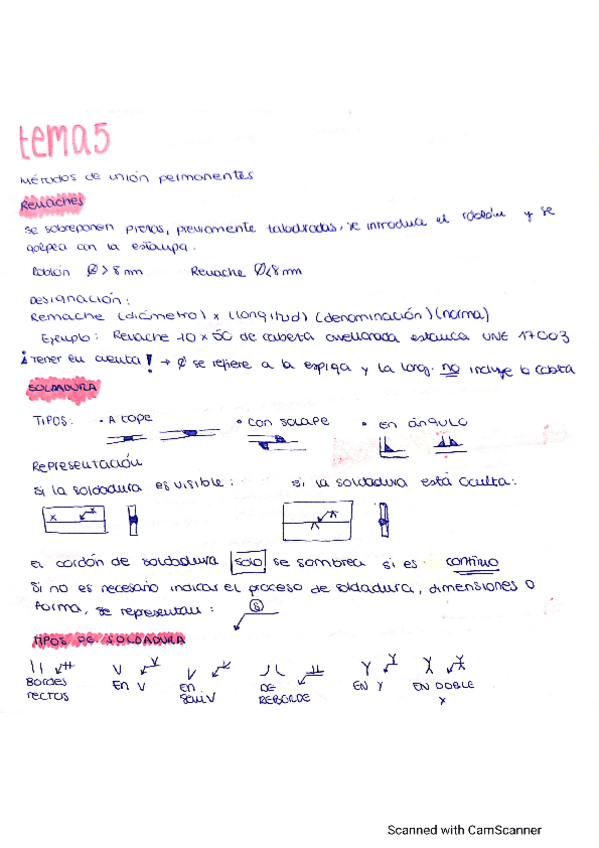 tema5
Métodos de unión permanentes
Remaches
Se sobreponen piezas, previamente taladradas, se introduce el roblón y se
golpea con la estampa.
Roblón Ø > 8 mm Remache Ø < 8 mm
Designación:
Remache (diámetro) x (longitud) (denominación) (norma)
Ejemplo: Remache 10 x 50 de cabeza avellanada estanca UNE 17003
¡Tener en cuenta! → Ø se refiere a la espiga y la long. no incluye la cabeza
SOLDADURA
TIPOS: • A tope • con solape • en ángulo
Representación
si la soldadura es visible: si la soldadura está oculta:
el cordón de soldadura solo se sombrea si es continuo
Si no es necesario indicar el proceso de soldadura, dimensiones o
forma, se representan:
TIPOS DE SOLDADURA
Bordes rectos En V En semiV DE REBORDE EN Y EN DOBLE X
Scanned with CamScanner